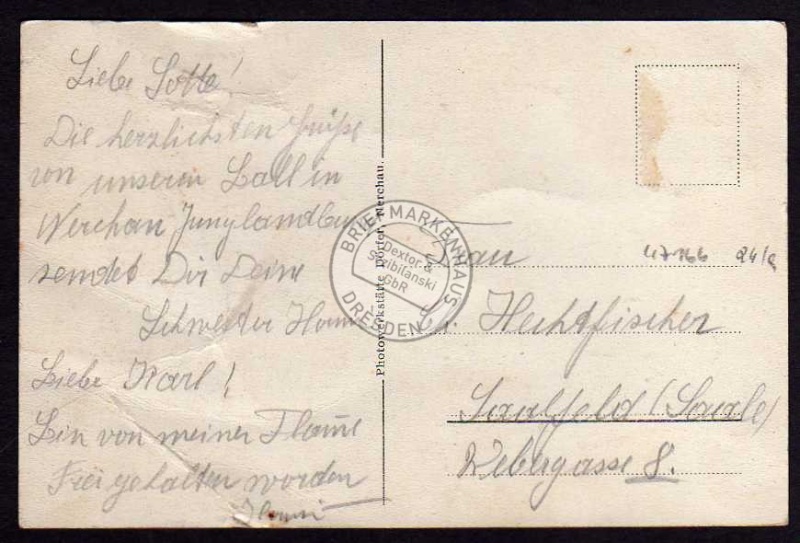 Liebe Lotte!
Die herzlichsten Grüße
von unseren Ball in
Nerchau Junglandbu
sendet Dir Deine
Schwester Hanni
Liebe Karl!
Bin von meiner Flame
Frei gehalten worden
Hanni
Photowerkstätte Dörfel, Nerchau.
BRIEFMARKENHAUS
Dextor &
Szibilanski
GbR
DRESDEN
47166 24/a
Frau
Hechtfischer
Saalfeld (Saale)
Webergasse 8.